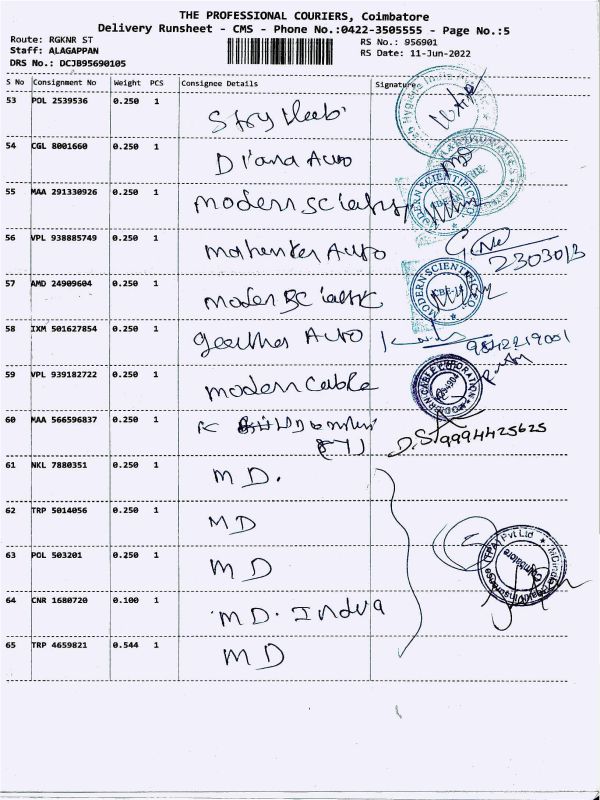 THE PROFESSIONAL COURIERS, Coimbatore
Delivery Runsheet - CMS - Phone No.:0422-3505555 - Page No.:5
Route: RGKNR ST
RS No.: 956901
Staff: ALAGAPPAN
RS Date: 11-Jun-2022
DRS No.: DCJB95690105
S No Consignment No Weight PCS Consignee Details Signature
53 POL 2539536 0.250 1
54 CGL 8001660 0.250 1 Diana Auto
55 MAA 291330926 0.250 1 modern
MODERN SCIENTIFIC CO.
56 VPL 938885749 0.250 1 Auto
2303013
57 AMD 24909604 0.250 1
MODERN SCIENTIFIC CO.
CBE-18
58 IXM 501627854 0.250 1 geetha Auto
9842219001
59 VPL 939182722 0.250 1 modern Cable
MODERN CABLE CORPORATION
60 MAA 566596837 0.250 1
D.S. 9994425625
61 NKL 7880351 0.250 1 MD.
62 TRP 5014056 0.250 1 MD
63 POL 503201 0.250 1 MD
(TPA) Pvt Ltd
Coimbatore
64 CNR 1680720 0.100 1 MD. India
65 TRP 4659821 0.544 1 MD